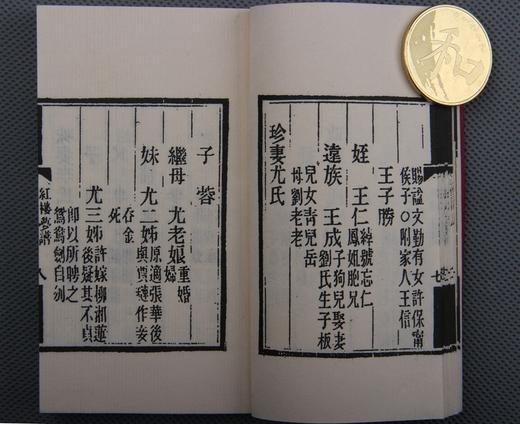 賜謚文勤有女許保甯
侯子○附家人王信
王子勝
姪 王仁 綽號忘仁
鳳姐胞兄
遠族 王成 子狗兒娶妻
劉氏生子板
兒女青兒岳
母劉老老
珍妻尤氏
七
子蓉
繼母 尤老娘 重婚
婦
妹 尤二姊 原適張華後
與賈璉作妾
吞金
死
尤三姊 許嫁柳湘蓮
後疑其不貞
卽以所聘之
鴛鴦劍自刎
紅樓夢譜
八
和